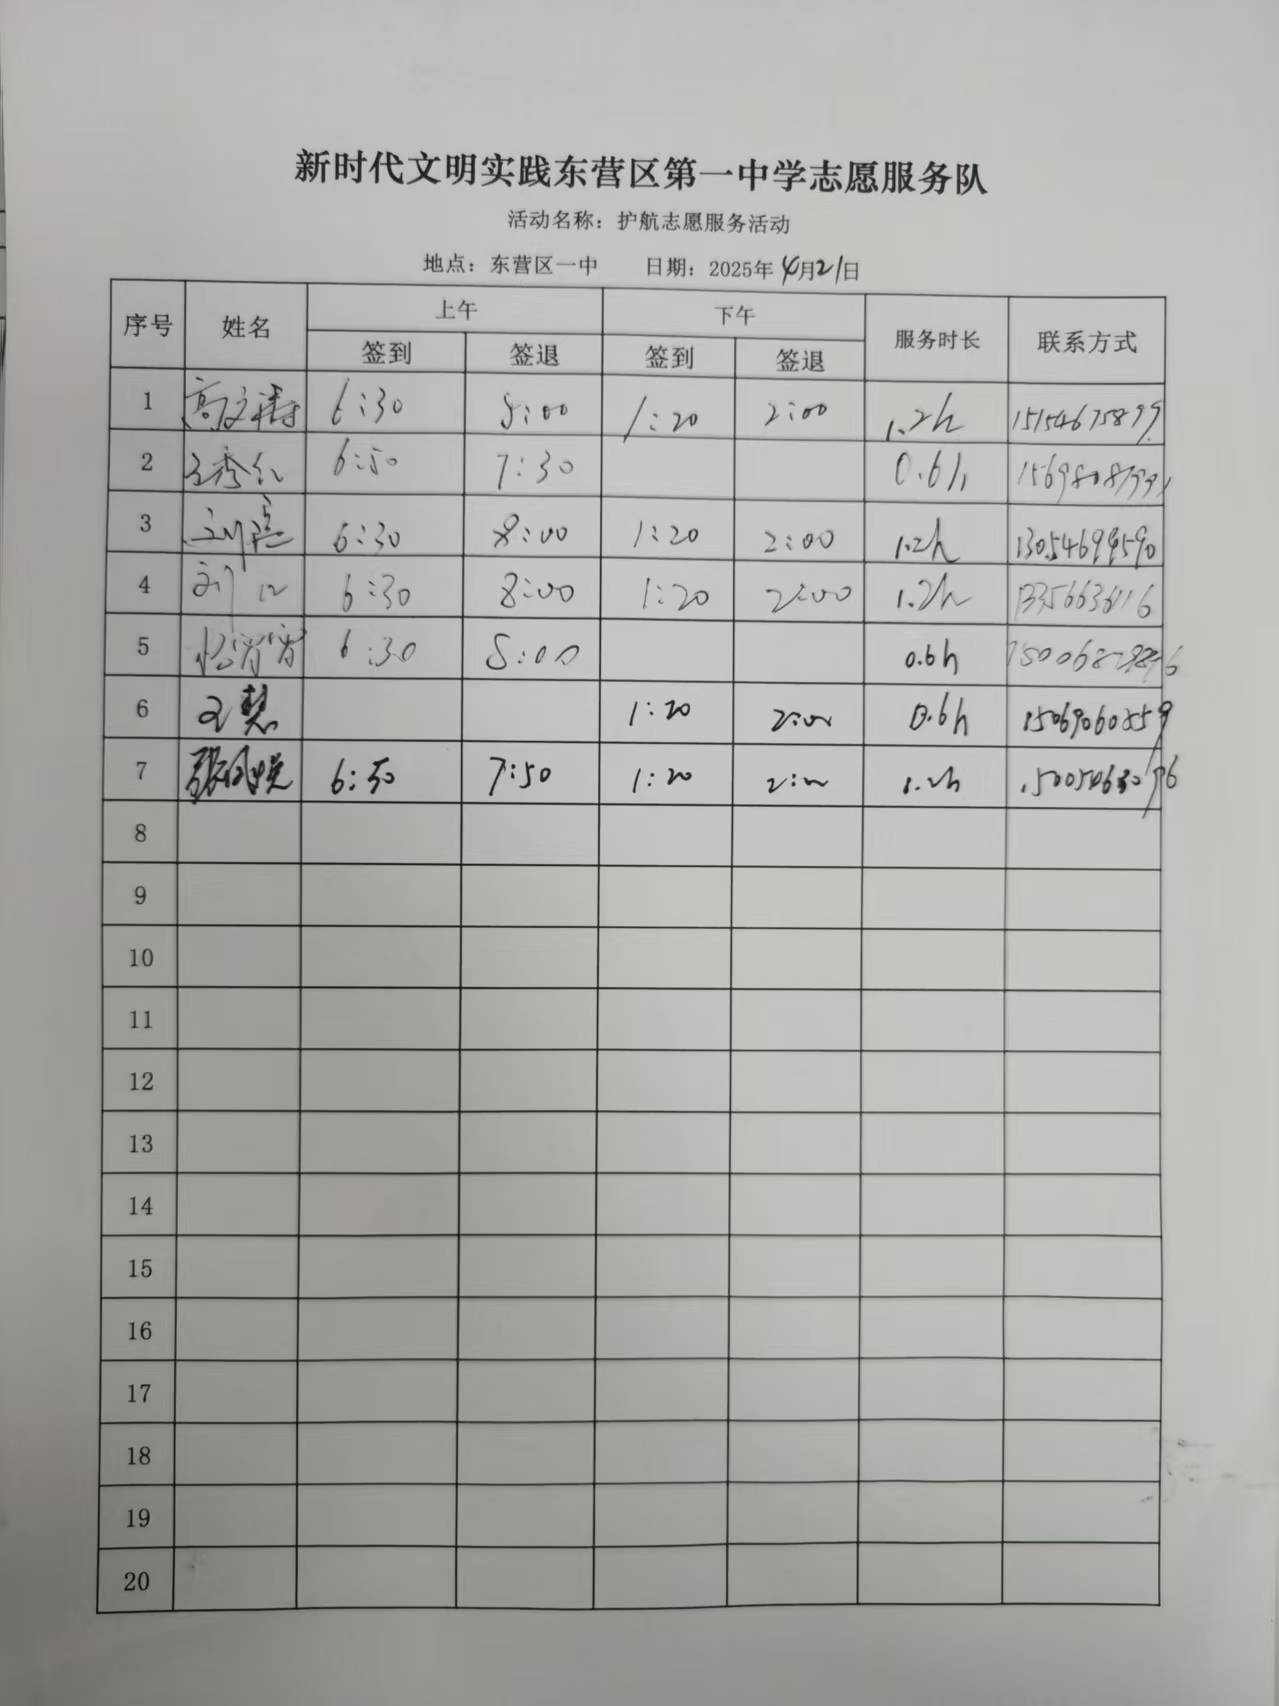 新时代文明实践东营区第一中学志愿服务队
活动名称：护航志愿服务活动
地点：东营区一中 日期：2025年4月21日
序号 姓名 上午 下午 服务时长 联系方式
签到 签退 签到 签退
1 6:30 8:00 1:20 2:00 1.2h 15154675899
2 王秀红 6:50 7:30 0.6h
3 刘亮 6:30 8:00 1:20 2:00 1.2h
4 刘江 6:30 8:00 1:20 2:00 1.2h
5 6:30 8:00 0.6h
6 王慧 1:20 2:00 0.6h 15069060559
7 6:50 7:50 1:20 2:00 1.2h 15005463096
8
9
10
11
12
13
14
15
16
17
18
19
20